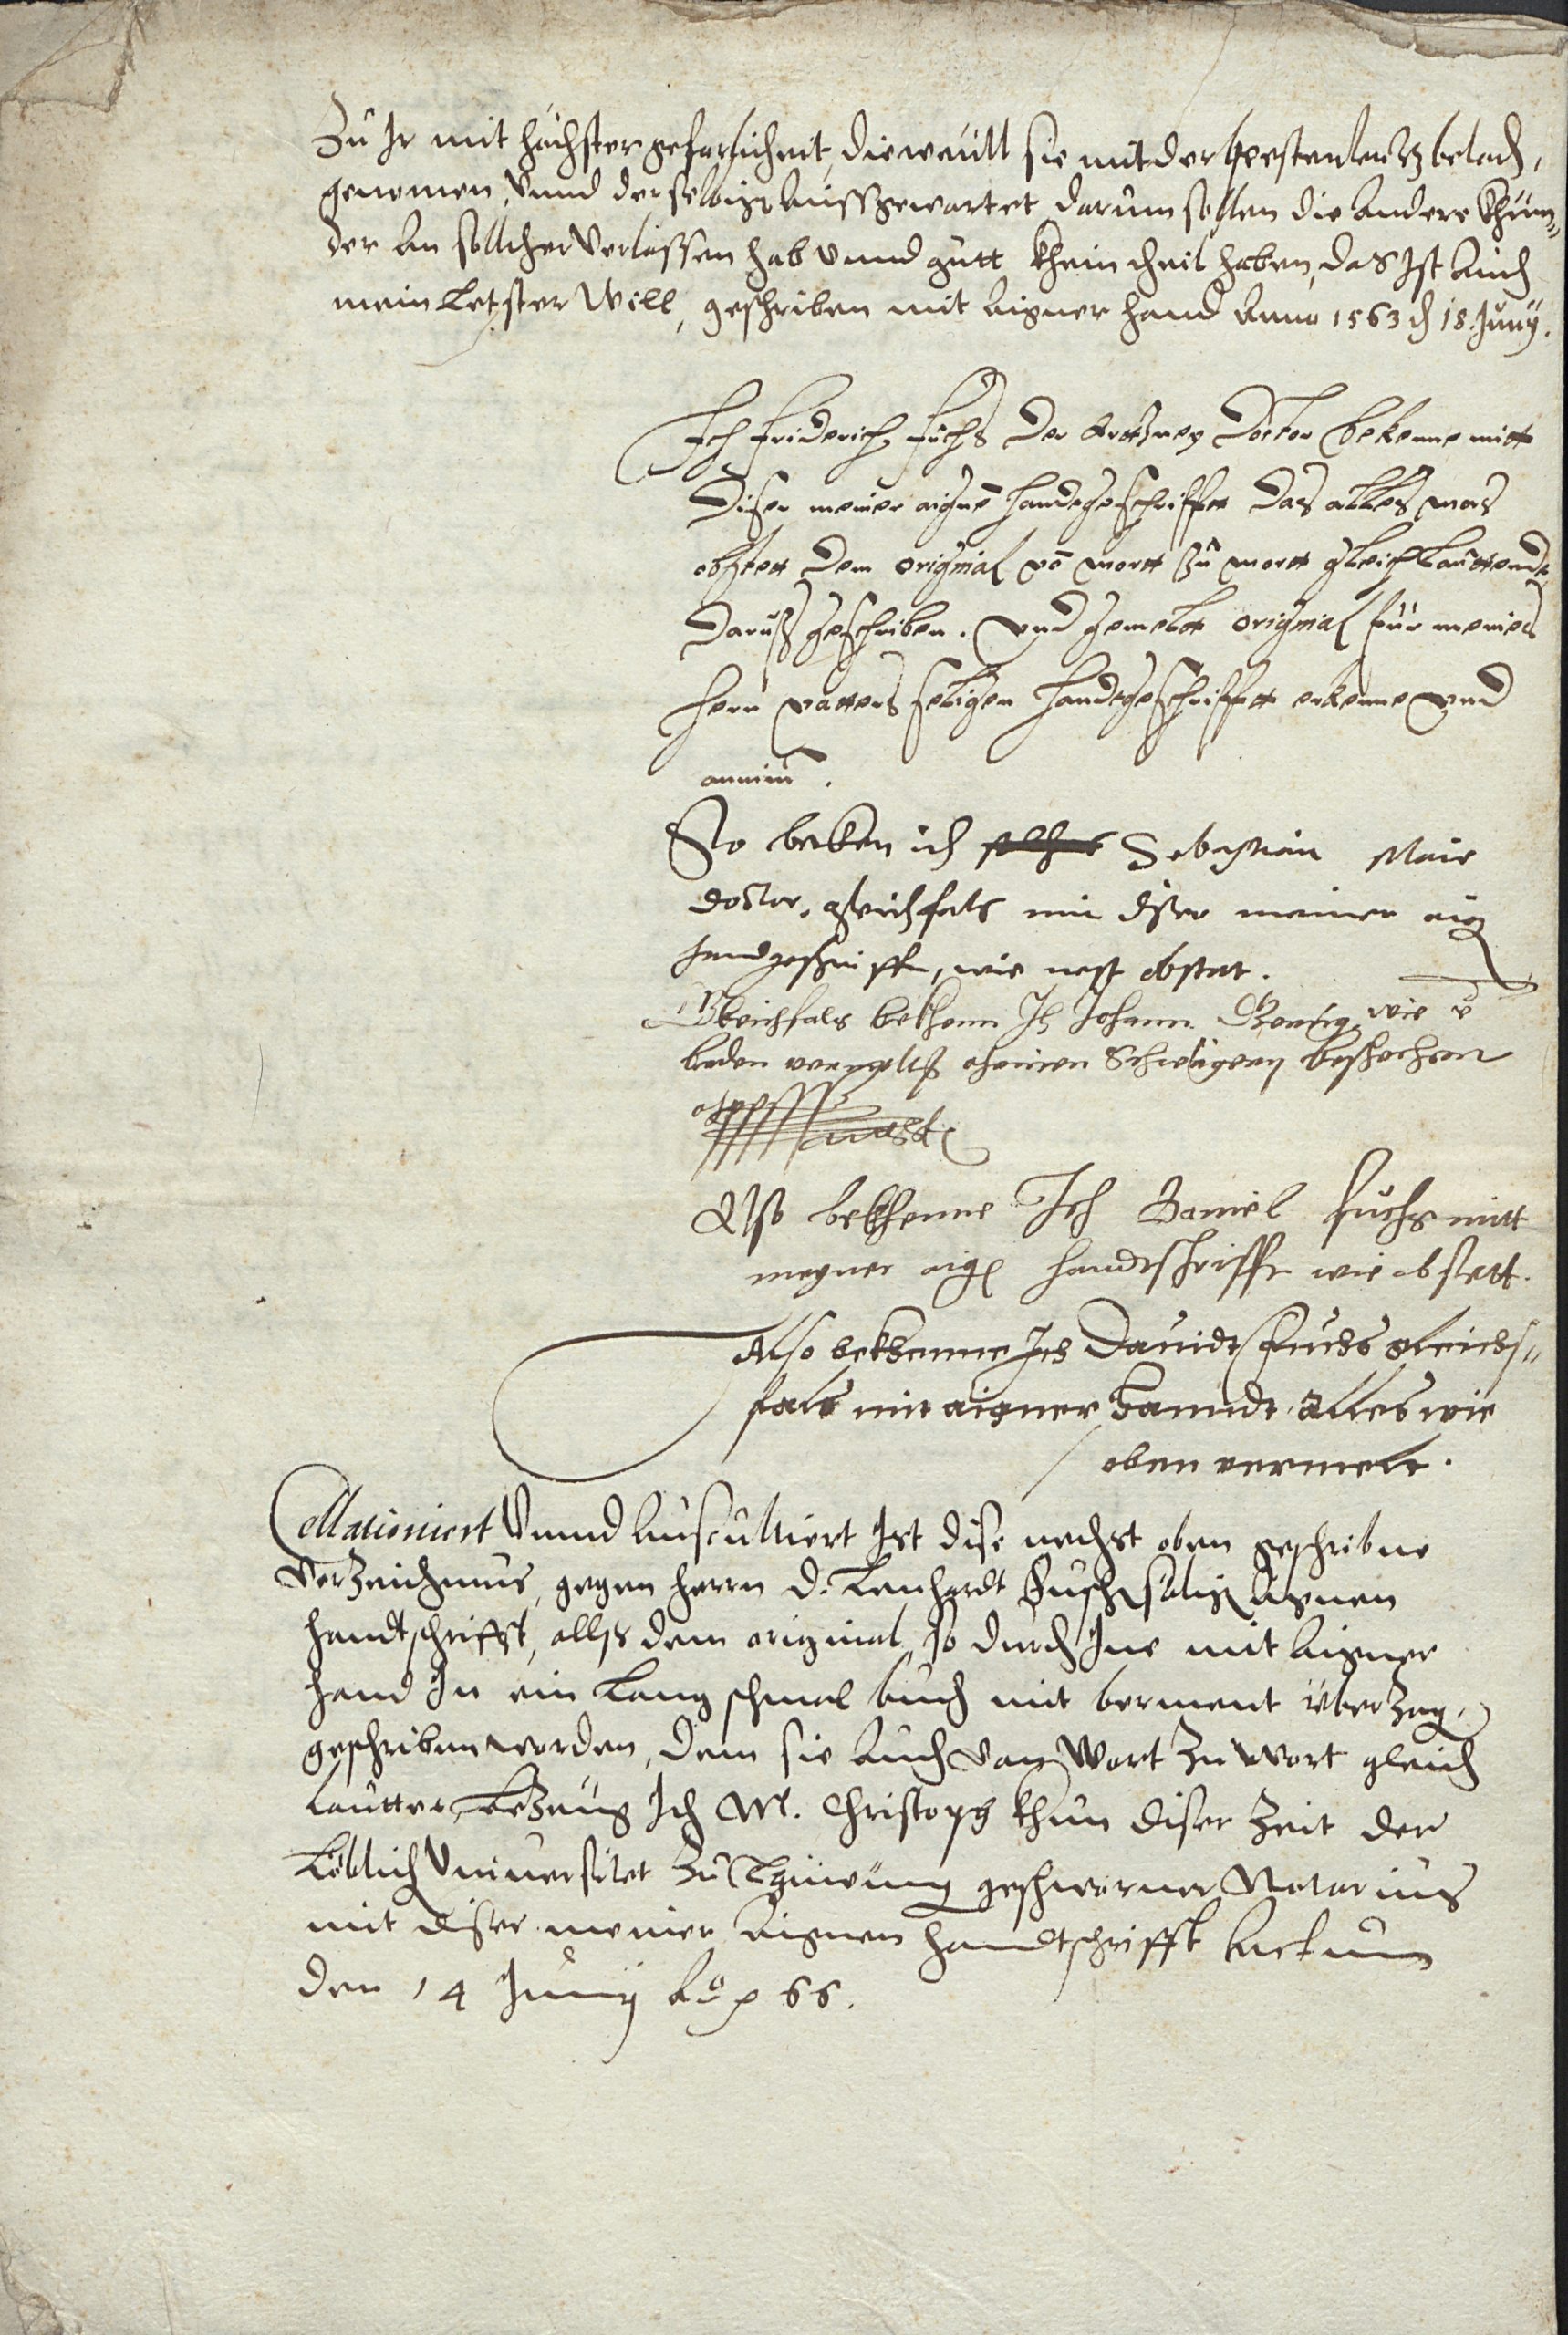 Zu Ir mit höchster geferlicheit, dieweill sie mit der pestentenz beladen,
genomen, vnnd derselbigen aussgewartet darum sollen die andere Khin„
der an sollcher verlassen hab vnnd gutt khein theil haben, das Ist auch
mein letster Will, geschriben mit aigner hand Anno 1563 den 18. Junij.
Ich Friderich Fuchs der Artzney Doctor bekenne mitt
diser meiner aignē handtgeschrifftt das alles was
obstett dem original vō wortt zu wortt gleich lauttende
daruß geschriben. vnd gemelt original für meines
herrn vatters seligen handtgeschrifftt erkenne vnd
annim̄.
So beken ich Sebastian Mair
doctor, gleichfals mit diser meiner aigen
handgeschrifft, wie nest obstat.
Gleichfals bekhenn Ich Johann wie
beden meine Schwägern beschechen
Also bekhenne Ich Daniel Fuchs mitt
meyner aigen handtschrifft wie obstett.
Also bekhenne Ich Dauidt Fuchs gleichs„
fals mit aigner hanndt alles wie
oben vermelt.
Collationiert vnnd auscultiert Ist dise nechst oben geschribne
Verzeichnus, gegen herrn D. Lenhardt Fuchsen seligen aignen
handtschrifft, allss dem original, so durch Ine mit aigner
hand In ein Lang schmal buch mit berment überzogen,
geschriben worden, dem sie auch von Wort zu Wort gleich
lauttet, bezeug Ich M. Christoph Khun diser Zeit der
Löblichen Vniuersitet zu Tüwingen geschworner Notarius
mit diser meiner aignen handtschrifft Actum
den 14 Junij Aō p 66.